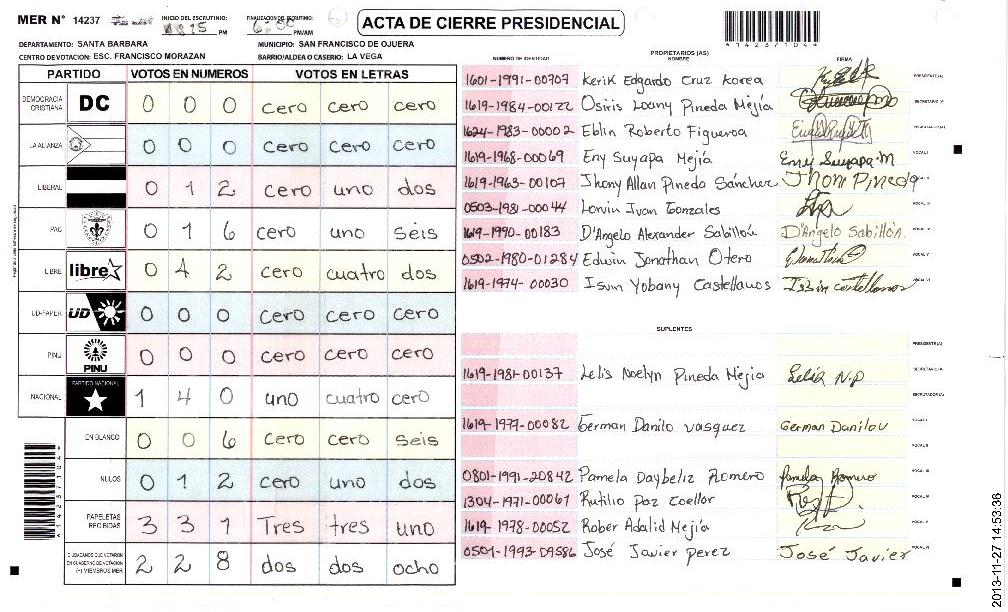 MER N° 14237 INICIO DEL ESCRUTINIO: PM FINALIZACION DEL ESCRUTINIO: PM/AM
ACTA DE CIERRE PRESIDENCIAL
DEPARTAMENTO: SANTA BARBARA MUNICIPIO: SAN FRANCISCO DE OJUERA
CENTRO DE VOTACION: ESC. FRANCISCO MORAZAN BARRIO/ALDEA O CASERIO: LA VEGA
PARTIDO VOTOS EN NUMEROS VOTOS EN LETRAS
DEMOCRACIA CRISTIANA DC 0 0 0 cero cero cero
LA ALIANZA 0 0 0 cero cero cero
LIBERAL 0 1 2 cero uno dos
PAC 0 1 6 cero uno seis
LIBRE libre 0 4 2 cero cuatro dos
UD-FAPER UD 0 0 0 cero cero cero
PINU PINU 0 0 0 cero cero cero
NACIONAL PARTIDO NACIONAL 1 4 0 uno cuatro cero
EN BLANCO 0 0 6 cero cero seis
NULOS 0 1 2 cero uno dos
PAPELETAS RECIBIDAS 3 3 1 Tres tres uno
CIUDADANOS QUE VOTARON EN CUADERNO DE VOTACION (+) MIEMBROS MER 2 2 8 dos dos ocho
PROPIETARIOS (AS)
NUMERO DE IDENTIDAD NOMBRE FIRMA
1601-1991-00707 Kerik Edgardo Cruz Korea PRESIDENTE(A)
1619-1984-00122 Osiris Loany Pineda Mejía SECRETARIO (A)
1624-1983-00002 Eblin Roberto Figueroa
1619-1968-00069 Eny Suyapa Mejía Emy Suyapa M VOCAL I
1619-1963-00107 Jhony Allan Pineda Sánchez Jhoni Pineda
0503-1981-00044 Lorvin Ivan Gonzales VOCAL III
1619-1990-00183 D'Angelo Alexander Sabillón D'Angelo Sabillón.
0502-1980-01284 Edwin Jonathan Otero VOCAL V
1619-1974-00030 Isum Yobany Castellanos VOCAL VI
SUPLENTES
PRESIDENTE(A)
1619-1981-00137 Lelis Noelyn Pineda Mejia Lelis N.P SECRETARIO/A
ESCRUTADOR(A)
1619-1977-00082 German Danilo vasquez German Danilo V VOCAL I
VOCAL II
0801-1991-20842 Pamela Daybeliz Romero Pamela Romero VOCAL III
1304-1971-00061 Rutilio Paz Coellor VOCAL IV
1619-1978-00052 Rober Adalid Mejía VOCAL V
0501-1993-09586 José Javier perez José Javier VOCAL VI
1423710 49
2013-11-27 14:53:36